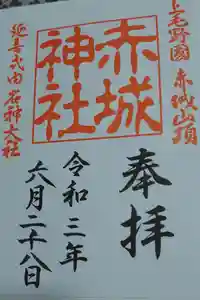 上毛野國 赤城山頂
奉拝
赤城
神社
令和三年
六月二十八日
延喜式内名神大社